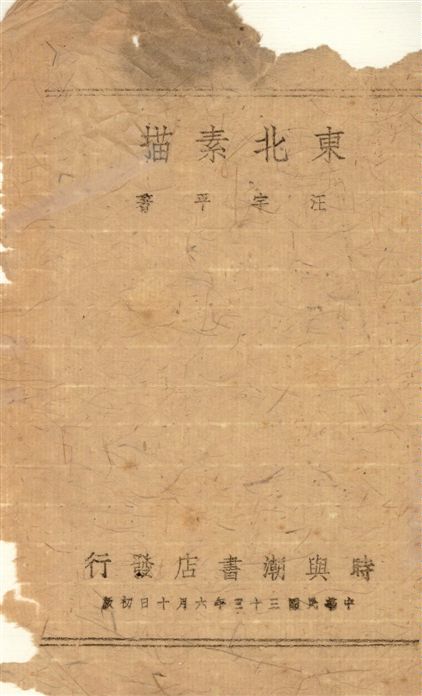 東北素描
汪宇平著
時與潮書店發行
中華民國三十三年六月十日初版